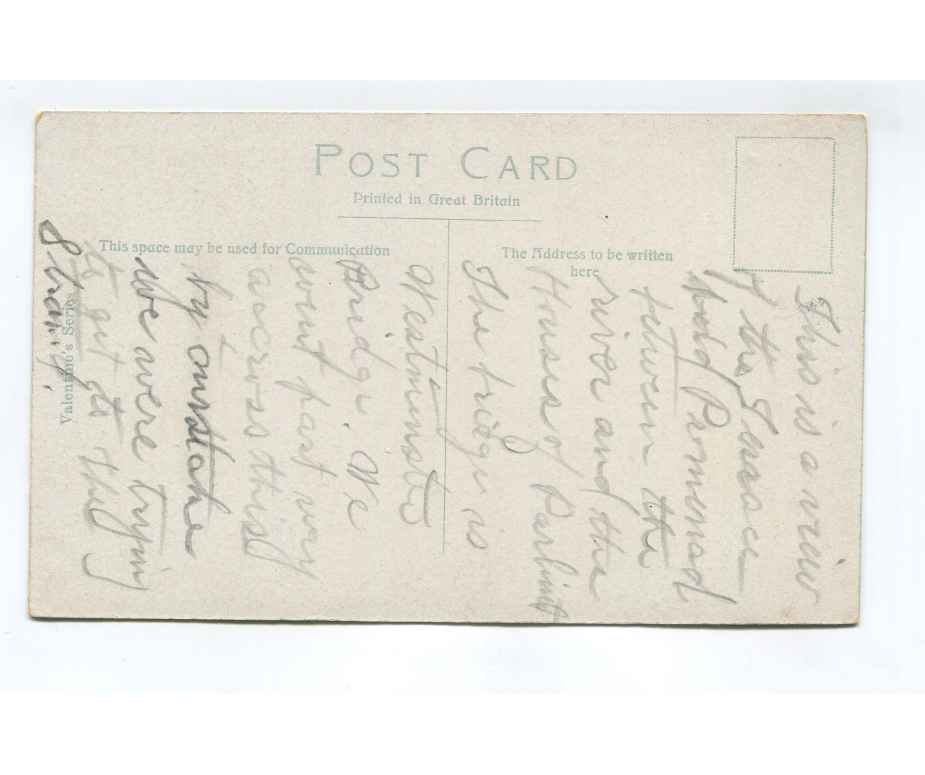 POST CARD
Printed in Great Britain
This space may be used for Communication
The Address to be written
here
Valentine's Series
This is a view
of the Terrace
and Promenad
between the
river and the
Houses of Parlimt
The bridge is
Westminster
Bridge. We
went part way
accross this
by mistake
We were trying
to get to the
Strand.